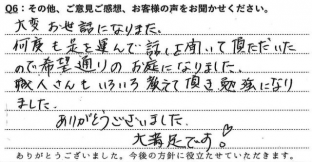 Q6：その他、ご意見ご感想、お客様の声をお聞かせください。
大変お世話になりました。
何度も足を運んで話しを聞いて頂いただいた
ので希望通りのお庭になりました。
職人さんもいろいろ教えて頂き勉強になり
ました。
ありがとうございました。
大満足です!
ありがとうございました。今後の方針に役立たせていただきます。